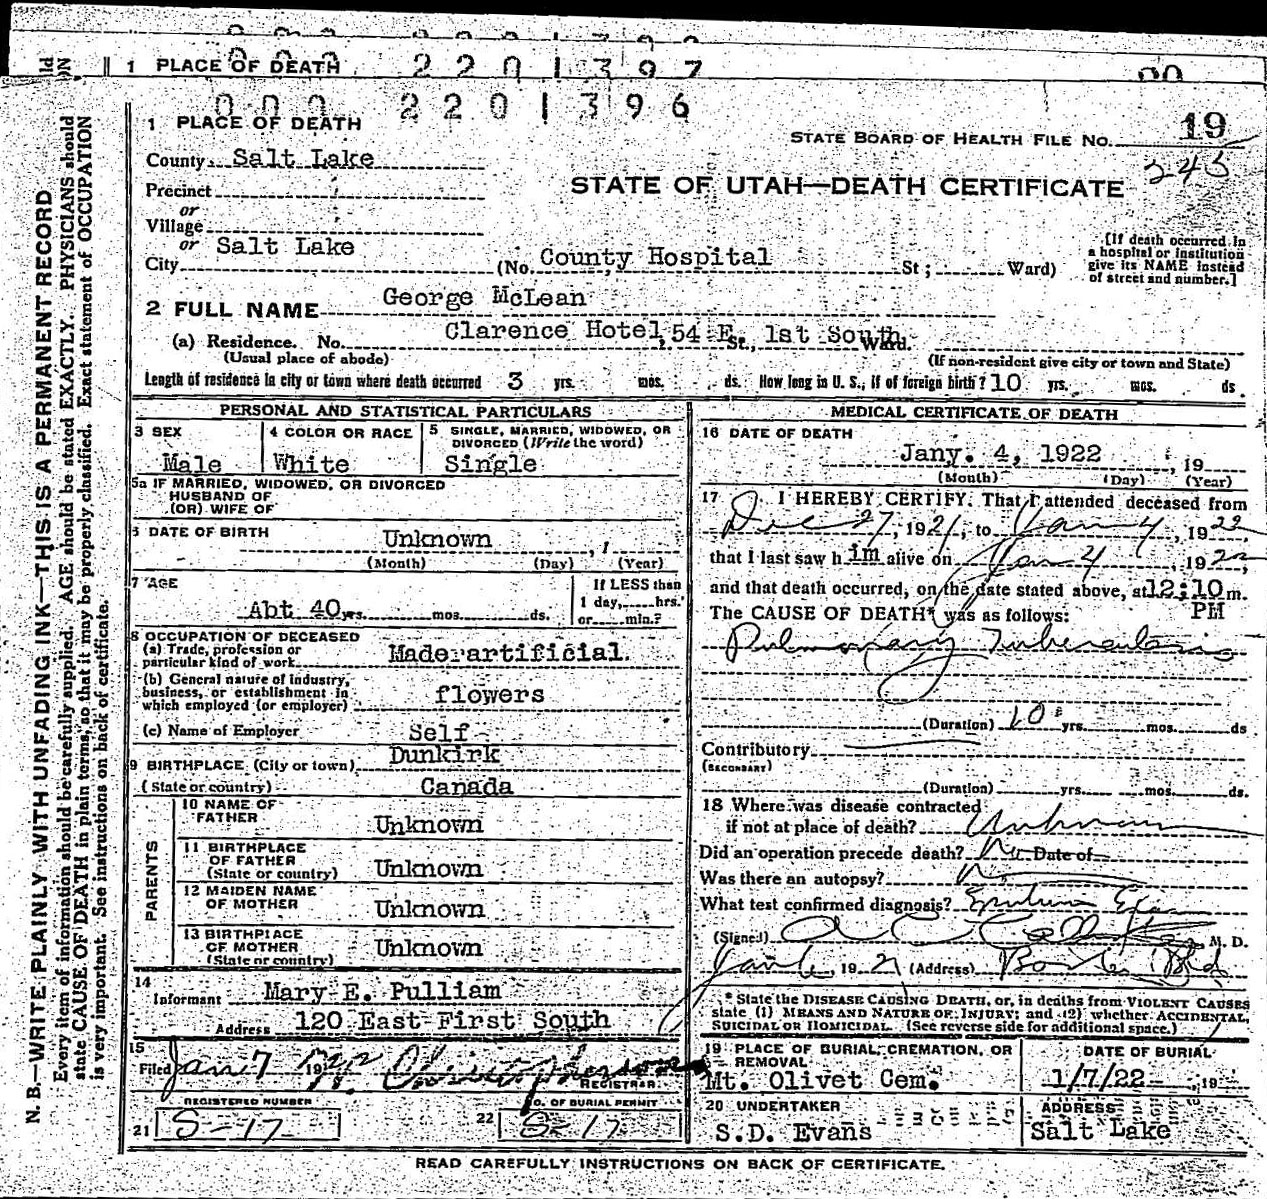 1 PLACE OF DEATH 2201397
000 2201396
1 PLACE OF DEATH
STATE BOARD OF HEALTH FILE No. 19
County Salt Lake
243
Precinct
STATE OF UTAH—DEATH CERTIFICATE
or
Village
or
City Salt Lake (No. County Hospital St; Ward)
[If death occurred in
a hospital or institution
give its NAME instead
of street and number.]
2 FULL NAME George McLean
(a) Residence. No. Clarence Hotel, 54 E. St., 1st South Ward.
(Usual place of abode) (If non-resident give city or town and State)
Length of residence in city or town where death occurred 3 yrs. mos. ds. How long in U. S., if of foreign birth? 10 yrs. mos. ds
PERSONAL AND STATISTICAL PARTICULARS
3 SEX 4 COLOR OR RACE 5 SINGLE, MARRIED, WIDOWED, OR
DIVORCED (Write the word)
Male White Single
5a IF MARRIED, WIDOWED, OR DIVORCED
HUSBAND OF
(OR) WIFE OF
6 DATE OF BIRTH Unknown , 1
(Month) (Day) (Year)
7 AGE If LESS than
1 day, hrs.
Abt 40 yrs. mos. ds. or min.?
8 OCCUPATION OF DECEASED
(a) Trade, profession or
particular kind of work Made artificial.
(b) General nature of industry,
business, or establishment in
which employed (or employer) flowers
(c) Name of Employer Self
9 BIRTHPLACE (City or town) Dunkirk
(State or country) Canada
PARENTS
10 NAME OF
FATHER Unknown
11 BIRTHPLACE
OF FATHER
(State or country) Unknown
12 MAIDEN NAME
OF MOTHER Unknown
13 BIRTHPLACE
OF MOTHER
(State or country) Unknown
14
Informant Mary E. Pulliam
Address 120 East First South
15
Filed Jan 7 19
REGISTRAR
REGISTERED NUMBER
NO. OF BURIAL PERMIT
21 S-17 22 S-17
MEDICAL CERTIFICATE OF DEATH
16 DATE OF DEATH
Jany. 4, 1922 , 19
(Month) (Day) (Year)
17 I HEREBY CERTIFY. That I attended deceased from
Dec 27, 1921, to Jan 4, 1922
that I last saw him alive on Jan 4, 1922,
and that death occurred, on the date stated above, at 12:10 m.
The CAUSE OF DEATH* was as follows: PM
Pulmonary Tuberculosis
(Duration) 10 yrs. mos. ds
Contributory
(SECONDARY)
(Duration) yrs. mos. ds.
18 Where was disease contracted
if not at place of death? Unknown
Did an operation precede death? No Date of
Was there an autopsy? No
What test confirmed diagnosis? Sputum Exam
(Signed) M. D.
19 21 (Address) Boston Bld
* State the DISEASE CAUSING DEATH, or, in deaths from VIOLENT CAUSES
state (1) MEANS AND NATURE OF INJURY; and (2) whether ACCIDENTAL,
SUICIDAL OR HOMICIDAL. (See reverse side for additional space.)
19 PLACE OF BURIAL, CREMATION, OR
REMOVAL
Mt. Olivet Cem.
DATE OF BURIAL
1/7/22 , 19
20 UNDERTAKER
S.D. Evans
ADDRESS
Salt Lake
READ CAREFULLY INSTRUCTIONS ON BACK OF CERTIFICATE.
N. B.—WRITE PLAINLY WITH UNFADING INK—THIS IS A PERMANENT RECORD
Every item of information should be carefully supplied. AGE should be stated EXACTLY. PHYSICIANS should
state CAUSE OF DEATH in plain terms, so that it may be properly classified. Exact statement of OCCUPATION
is very important. See instructions on back of certificate.